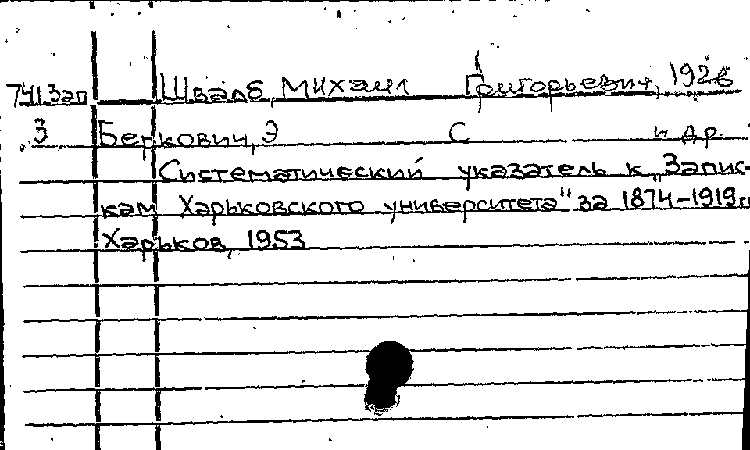 741 Зап Швалб, Михаил Григорьевич, 1926
3 Беркович, Э С и др.
Систематический указатель к „Запис-
кам Харьковского университета" за 1874-1919г.
Харьков, 1953